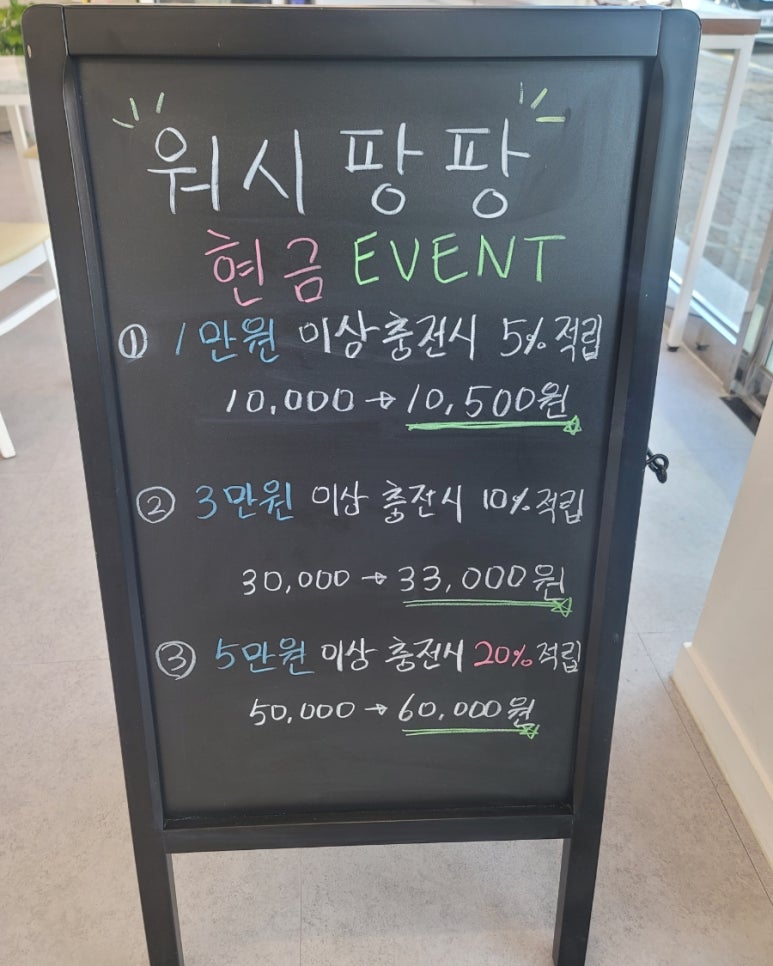 워시팡팡
현금 EVENT
① 1만원 이상 충전시 5% 적립
10,000 → 10,500원
② 3만원 이상 충전시 10% 적립
30,000 → 33,000원
③ 5만원 이상 충전시 20% 적립
50,000 → 60,000원